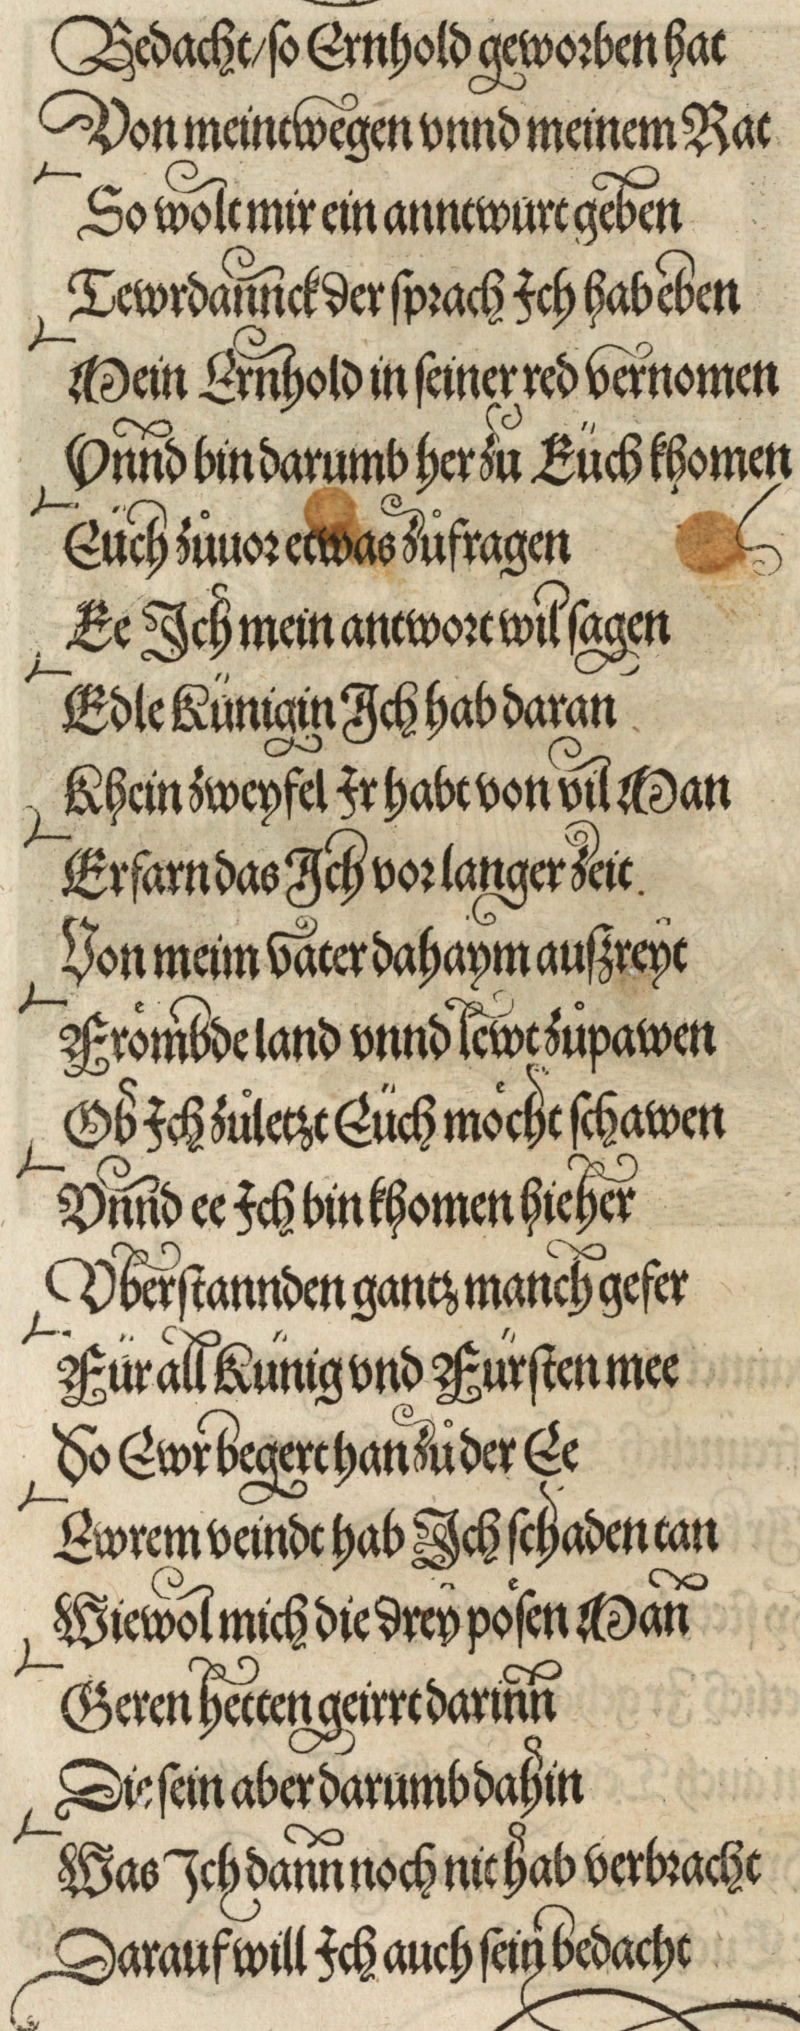 Bedacht/so Ernhold geworben hat
Von meintwegen vnnd meinem Rat
So wolt mir ein anntwurt geben
Tewrdannck der sprach Ich hab eben
Mein Ernhold in seiner red vernomen
Vnnd bin darumb her zu Euͤch khomen
Euͤch zůuor etwas zůfragen
Ee Ich mein antwort wil sagen
Edle Künigin Ich hab daran
Khein zweyfel Ir habt von vil Man
Erfarn das Ich vor langer zeit
Von meim vater dahaym auszreyt
Frömbde land vnnd lewt zůpawen
Ob Ich zůletzt Euͤch möcht schawen
Vnnd ee Ich bin khomen hieher
Vberstannden gantz manch gefer
Für all Künig vnd Fürsten mee
So Ewr begert han zů der Ee
Ewrem veindt hab Ich schaden tan
Wiewol mich die drey pösen Man
Geren hetten geirrt darinn
Die sein aber darumb dahin
Was Ich dann noch nit hab verbracht
Darauf will Ich auch sein bedacht